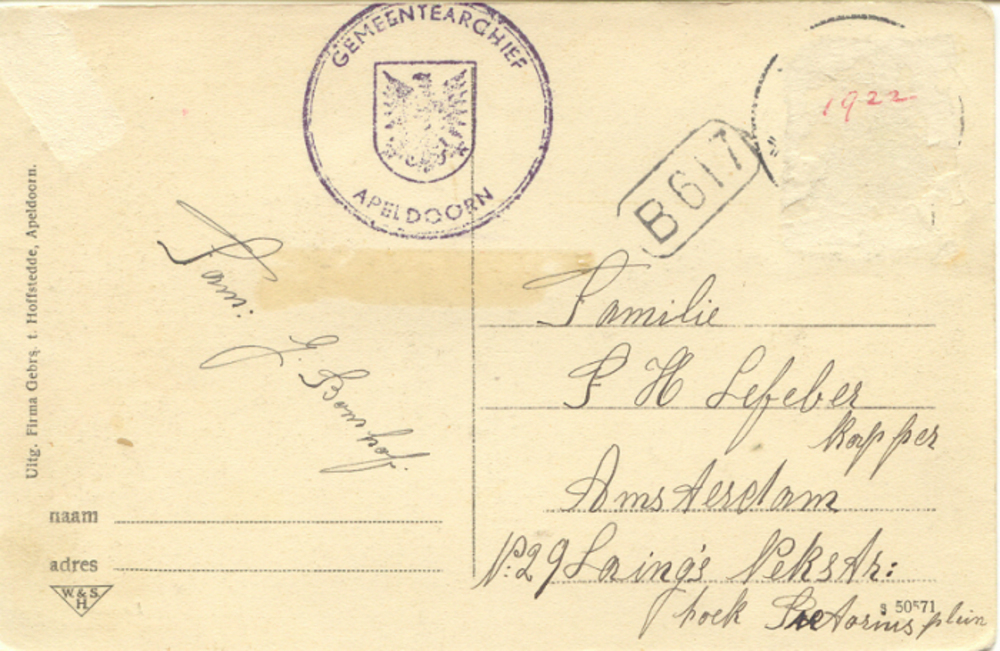 GEMEENTEARCHIEF
APELDOORN
1922
B617
Uitg. Firma Gebrs. t. Hoffstedde, Apeldoorn.
Fam.
G. Bouwhof.
naam
adres
W. & S.
H.
Familie
P H Lefeber
Kapper
Amsterdam
No. 29 Laing's Nekstr:
hoek Pretorius plein
S 50571